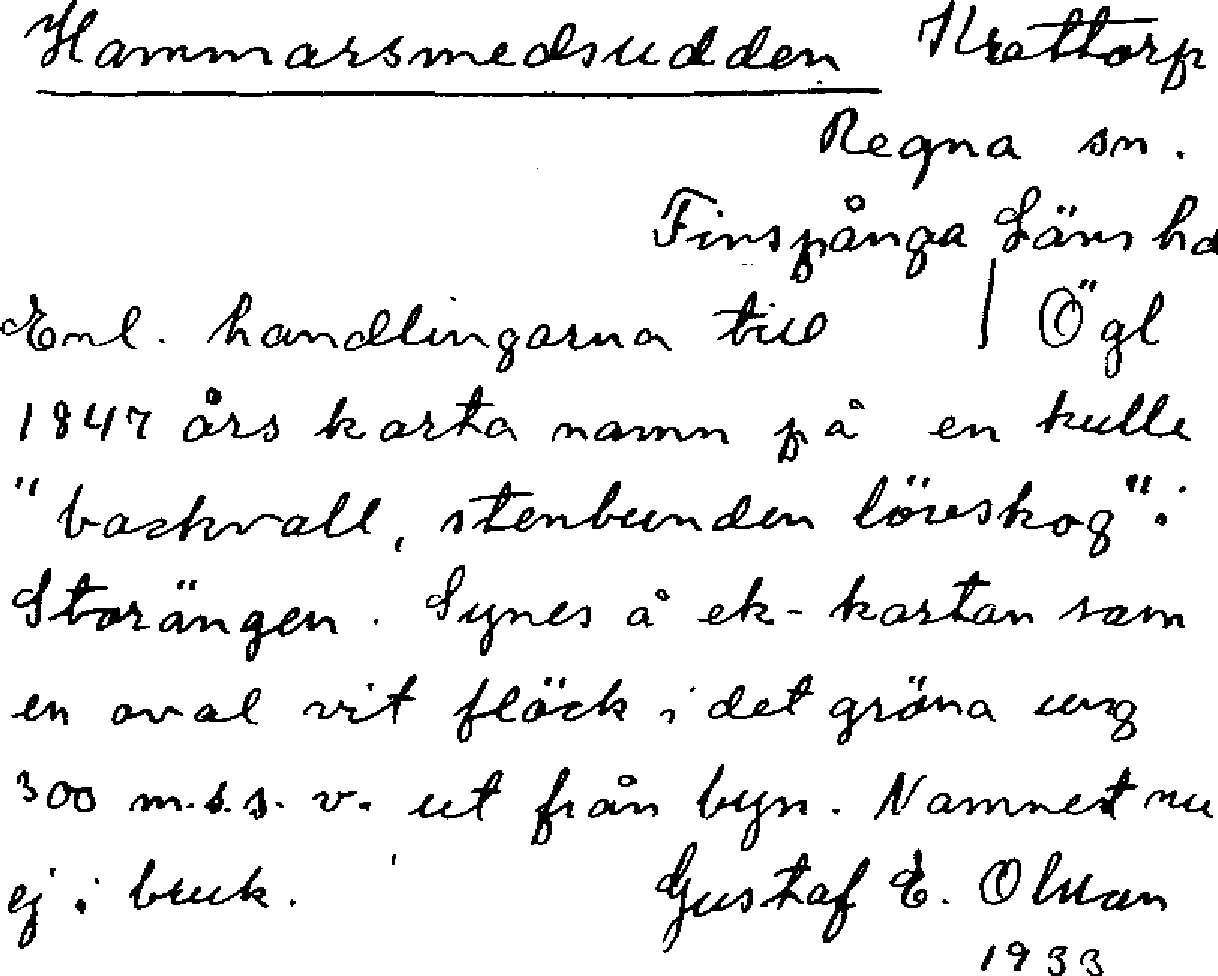 Hammarsmedsudden Krattorp
Regna sn.
Finspånga Läns hd
Enl. handlingarna till | Ögl
1847 års karta namn på en kulle
"backvall, stenbunden lövskog" i
Storängen. Synes å ek-kartan som
en oval vit fläck i det gröna ung
300 m. s.s.v. ut från byn. Namnet nu
ej i bruk. Gustaf E. Olsson
1933